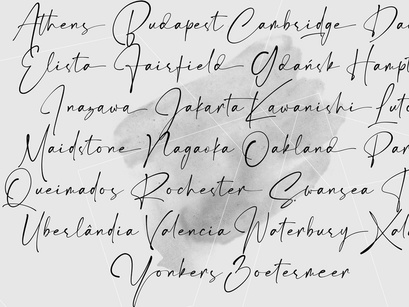 Athens Budapest Cambridge Da
Elista Fairfield Gdańsk Hampt
Inazawa Jakarta Kawanishi Lut
Maidstone Nagaoka Oakland Par
Queimados Rochester Swansea T
Uberlândia Valencia Waterbury Xal
Yonkers Zoetermeer